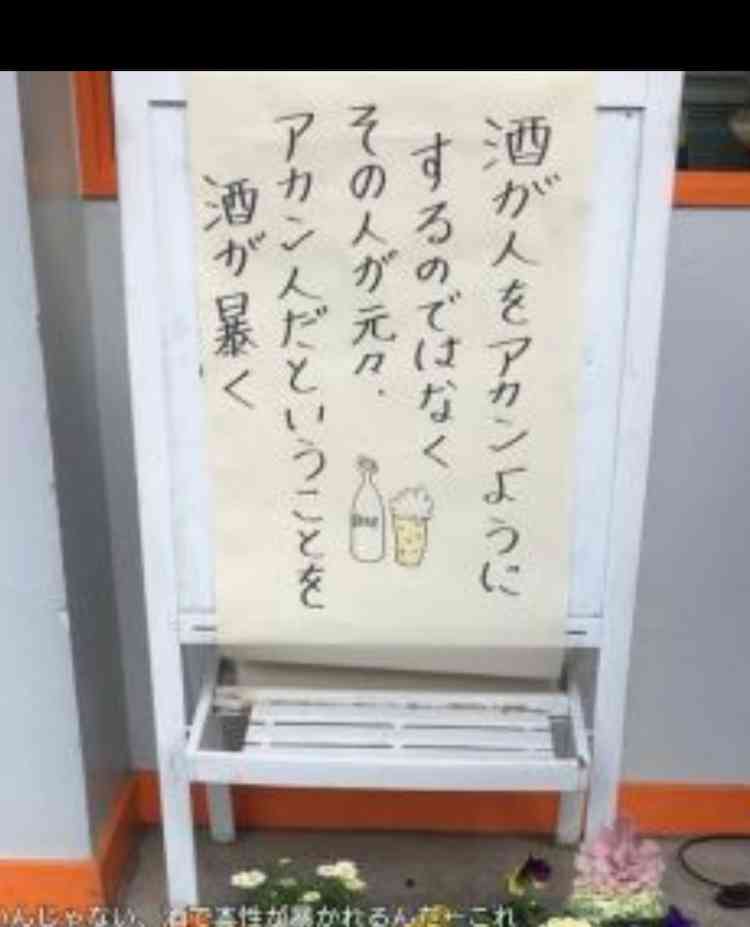 酒が人をアカンように
するのではなく
その人が元々、
アカン人だということを
酒が暴く
んじゃない、酒で本性が暴かれるんだ←これ